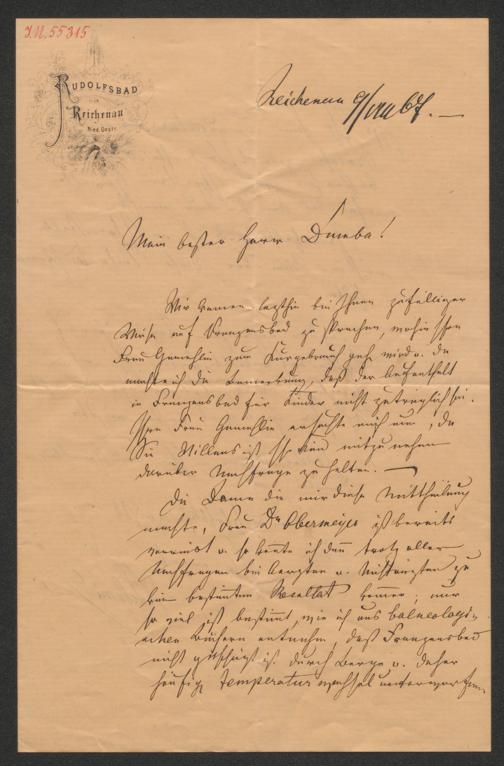 I.N. 55315
RUDOLFSBAD
Reichenau
Nied. Oestr.
Reichenau 9/VIII 67.
Mein bester Herr Dumba!
Wir kamen letzthin bei Ihnen zufälliger
Weise auf Franzensbad zu sprechen, wohin Ihre
Frau Gemahlin zum Kurgebrauch gehen wird u. da
machte ich die Bemerkung, daß der Aufenthalt
in Franzensbad für Kinder nicht zuträglich sei.
Ihre Frau Gemahlin ersuchte mich nun, da
Sie Willens ist Ihr Kind mitzunehmen
darüber Nachfrage zu halten. —
Die Dame die mir diese Mittheilung
machte, Frau Dr Obermeyer ist bereits
verreist u. so konnte ich denn trotz aller
Nachfragen bei Aerzten u. zu
kein bestimtes Resultat kommen; nur
so viel ist bestimmt, wie ich aus balneologi-
schen Büchern entnehme, daß Franzensbad
nicht geschützt ist durch Berge u. daher
häufig Temperaturwechsel unterworfen.